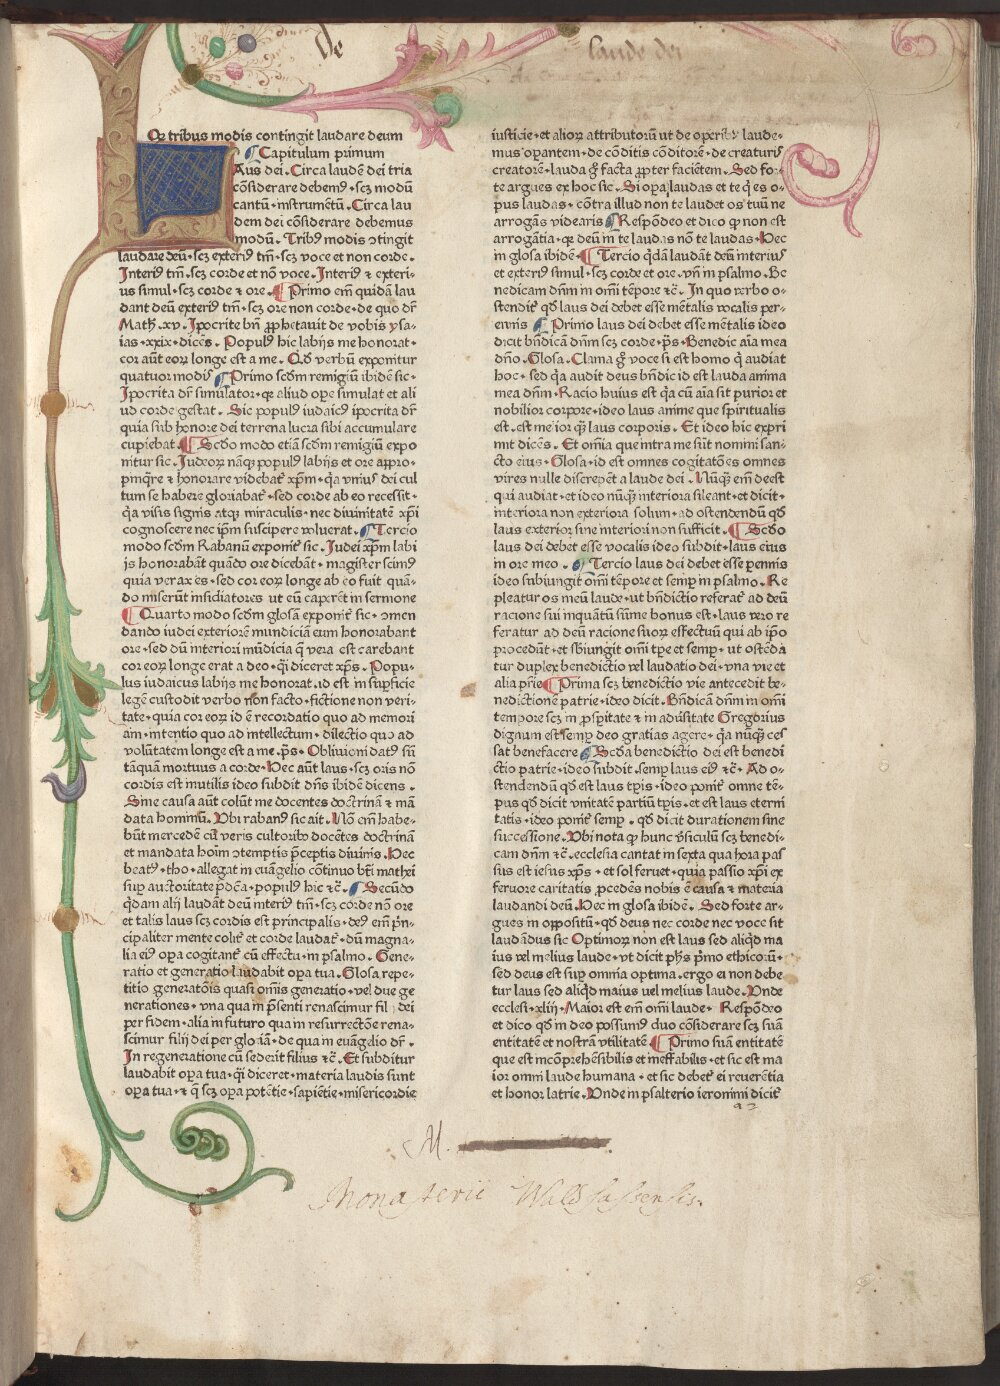 De laude dei
Qͥ tribus modis contingit laudare deum
Capitulum primum
Laus dei. Circa laudē dei tria
cōsiderare debemꝰ · scꝫ modū
cantū · instrumētū. Circa lau
dem dei cōsiderare debemus
modū. Tribꝰ modis ↄtingit
laudare deū · scꝫ exteriꝰ tm̄ · scꝫ voce et non corde.
Interiꝰ tm̄. scꝫ corde et nō voce. Interiꝰ & exteri-
us simul · scꝫ corde & ore. Primo em̄ quidā lau
dant deū exteriꝰ tm̄ · scꝫ ore non corde · de quo dr̄
Math. xv. Ipocrite bn̄ ꝓphetauit de vobis ysa-
ias · xxix · dicēs. Populꝰ hic labijs me honorat ·
cor aūt eoꝝ longe est a me. Qd̄ verbū exponitur
quatuor modis Primo scd̄m remigiū ibidē sic ·
Ipocrita dr̄ simulator · qꝛ aliud ope simulat et ali
ud corde gestat. Sic populꝰ iudaicꝰ ipocrita dr̄
quia sub honore dei terrena lucra sibi accumulare
cupiebat. Scd̄o modo etiā scd̄m remigiū expo
nitur sic. Iudeoꝝ nāqꝫ populꝰ labijs et ore appro-
pinq̄re & honorare videbat᷑ xp̄m · qꝛ vniꝰ dei cul
tum se habere gloriabat᷑ · sed corde ab eo recessit ·
qꝛ visis signis atqꝫ miraculis · nec diuinitatē xp̄i
cognoscere nec ip̄m suscipere voluerat. Tercio
modo scd̄m Rabanū exponit᷑ sic. Iudei xp̄m labi
js honorabāt quādo ore dicebāt · magister scimꝰ
quia verax es · sed cor eoꝝ longe ab eo fuit quā-
do miserūt insidiatores ut eū caꝑēt in sermone
Quarto modo scd̄m glosā exponit᷑ sic · ↄmen
dando iudei exteriorē mundiciā eum honorabant
ore · sed dū interiori mūdicia q̄ vera est carebant
cor eoꝝ longe erat a deo · q̄si diceret xp̄s. Popu-
lus iudaicus labijs me honorat · id est in suꝑficie
legē custodit verbo non facto · fictione non veri-
tate · quia cor eoꝝ id ē recordatio quo ad memori
am · intentio quo ad intellectum · dilectio quo ad
volūtatem longe est a me. p̄s. Obliuioni datꝰ sū
tāquā mortuus a corde. Hec aūt laus · scꝫ oris nō
cordis est inutilis ideo subdit dn̄s ibidē dicens.
Sine causa aūt colūt me docentes doctrinā & mā
data hominū. Vbi rabanꝰ sic ait. Nō em̄ habe-
būt mercedē cū veris cultoribꝰ docētes doctrinā
et mandata hoīm ↄtemptis p̄ceptis diuinis. Hec
beatꝰ · tho · allegat in euāgelio cōtinuo bt̄i mathei
suꝑ auctoritate p̄dc̄a · populꝰ hic &c̄. Secūdo
q̄dam alij laudāt deū interiꝰ tm̄ · scꝫ corde nō ore
et talis laus scꝫ cordis est principalis · deꝰ em̄ prīn-
cipaliter mente colit᷑ et corde laudat᷑ · dū magna-
lia eiꝰ oꝑa cogitant᷑ cū effectu · in psalmo. Gene-
ratio et generatio laudabit oꝑa tua. Glosa repe-
titio generatōnis quasi om̄is generatio · vel due ge
nerationes · vna qua in p̄senti renascimur filij dei
per fidem · alia in futuro qua in resurrectōe rena-
scimur filij dei per gloriā · de qua in euāgelio dr̄.
In regeneratione cū sederit filius &c̄. Et subditur
laudabit oꝑa tua · q̄si diceret · materia laudis sunt
oꝑa tua · & q̄ scꝫ oꝑa potētie · sapiētie · misericordie
iusticie · et alioꝝ attributorū ut de operibꝰ laude-
mus oꝑantem · de cōditis cōditorē · de creaturis
creatorē · lauda g̊ facta ꝓpter faciētem. Sed for-
te argues ex hoc sic. Si oꝑa laudas et te q̄ es o-
pus laudas · cōtra illud non te laudet os tuū ne
arrogās videaris Respōdeo et dico ꝙ non est
arrogātia · qꝛ deū in te laudas nō te laudas. Hec
in glosa ibidē. Tercio q̄dā laudāt deū interiꝰ
et exteriꝰ simul · scꝫ corde et ore · vn̄ in psalmo. Be
nedicam dn̄m in om̄i tēpore &c̄. In quo verbo o-
stendit᷑ qd̄ laus dei debet esse mētalis vocalis per-
ennis Primo laus dei debet esse mētalis ideo
dicit bn̄dicā dn̄m scꝫ corde · p̄s. Benedic aīa mea
dn̄o. Glosa. Clama g̊ voce si est homo q̄ audiat
hoc · sed qꝛ audit deus bn̄dic id est lauda anima
mea dn̄m. Racio huius est qꝛ cū aīa sit purior et
nobilior corpore · ideo laus anime que spiritualis
est · est melior qꝫ laus corporis. Et ideo hic expri
mit dicēs. Et om̄ia que intra me sūt nomini san-
cto eius. Glosa · id est omnes cogitatōes omnes
vires nulle discrepēt a laude dei. Nūqꝫ em̄ deest
qui audiat · et ideo nūqꝫ interiora sileant · et dicit ·
interiora non exteriora solum · ad ostendendū qd̄
laus exterior sine interiori non sufficit. Scd̄o
laus dei debet esse vocalis ideo subdit · laus eius
in ore meo. Tercio laus dei debet esse perinis
ideo subiungit om̄i tēpore et semꝑ in psalmo. Re
pleatur os meū laude · ut bn̄dictio referat᷑ ad deū
racione sui inquātū sūme bonus est · laus vero re
feratur ad deū racione suoꝝ effectuū qui ab ip̄o
procedūt · et sb̄iungit om̄i tꝑe et semꝑ · ut ostēda
tur duplex benedictio vel laudatio dei · vna vie et
alia pr̄ie Prima scꝫ benedictio vie antecedit be-
nedictionē patrie · ideo dicit. Bn̄dicā dn̄m in om̄i
tempore scꝫ in ꝓsꝑitate & in aduersitate Gregorius
dignum est semꝑ deo gratias agere · qꝛ nūqꝫ ces
sat benefacere Scd̄a benedictio dei est benedi
ctio patrie · ideo subdit · semꝑ laus eiꝰ &c̄. Ad o-
stendendū qd̄ est laus tꝑis · ideo ponit᷑ omne tē-
pus qd̄ dicit vnitatē partiū tꝑis · et est laus eterni
tatis · ideo ponit᷑ semꝑ. qd̄ dicit durationem sine
successione. Vbi nota ꝙ hunc v̄siculū scꝫ benedi-
cam dn̄m &c̄. ecclesia cantat in sexta qua hora pas
sus est iesus xp̄s · et sol feruet · quia passio xp̄i ex
feruore caritatis ꝓcedēs nobis ē causa & materia
laudandi deū. Hec in glosa ibidē. Sed forte ar-
gues in oppositū · qd̄ deus nec corde nec voce sit
laudādus sic Optimoꝝ non est laus sed aliqd̄ ma
ius vel melius laude · vt dicit ph̄s p̄mo ethicorū ·
sed deus est suꝑ omnia optima · ergo ei non debe
tur laus sed aliqd̄ maius vel melius laude. Vnde
ecclesi · xliij. Maior est em̄ om̄i laude. Respōdeo
et dico qd̄ in deo possumꝰ duo cōsiderare scꝫ suā
entitatē et nostrā vtilitatē Primo suā entitatē
que est incōprehēsibilis et ineffabilis · et sic est ma
ior omni laude humana · et sic debet᷑ ei reuerētia
et honor latrie. Vnde in psalterio ieronimi dicit᷑
a 2
M.
Monasterii Waldsassensis.